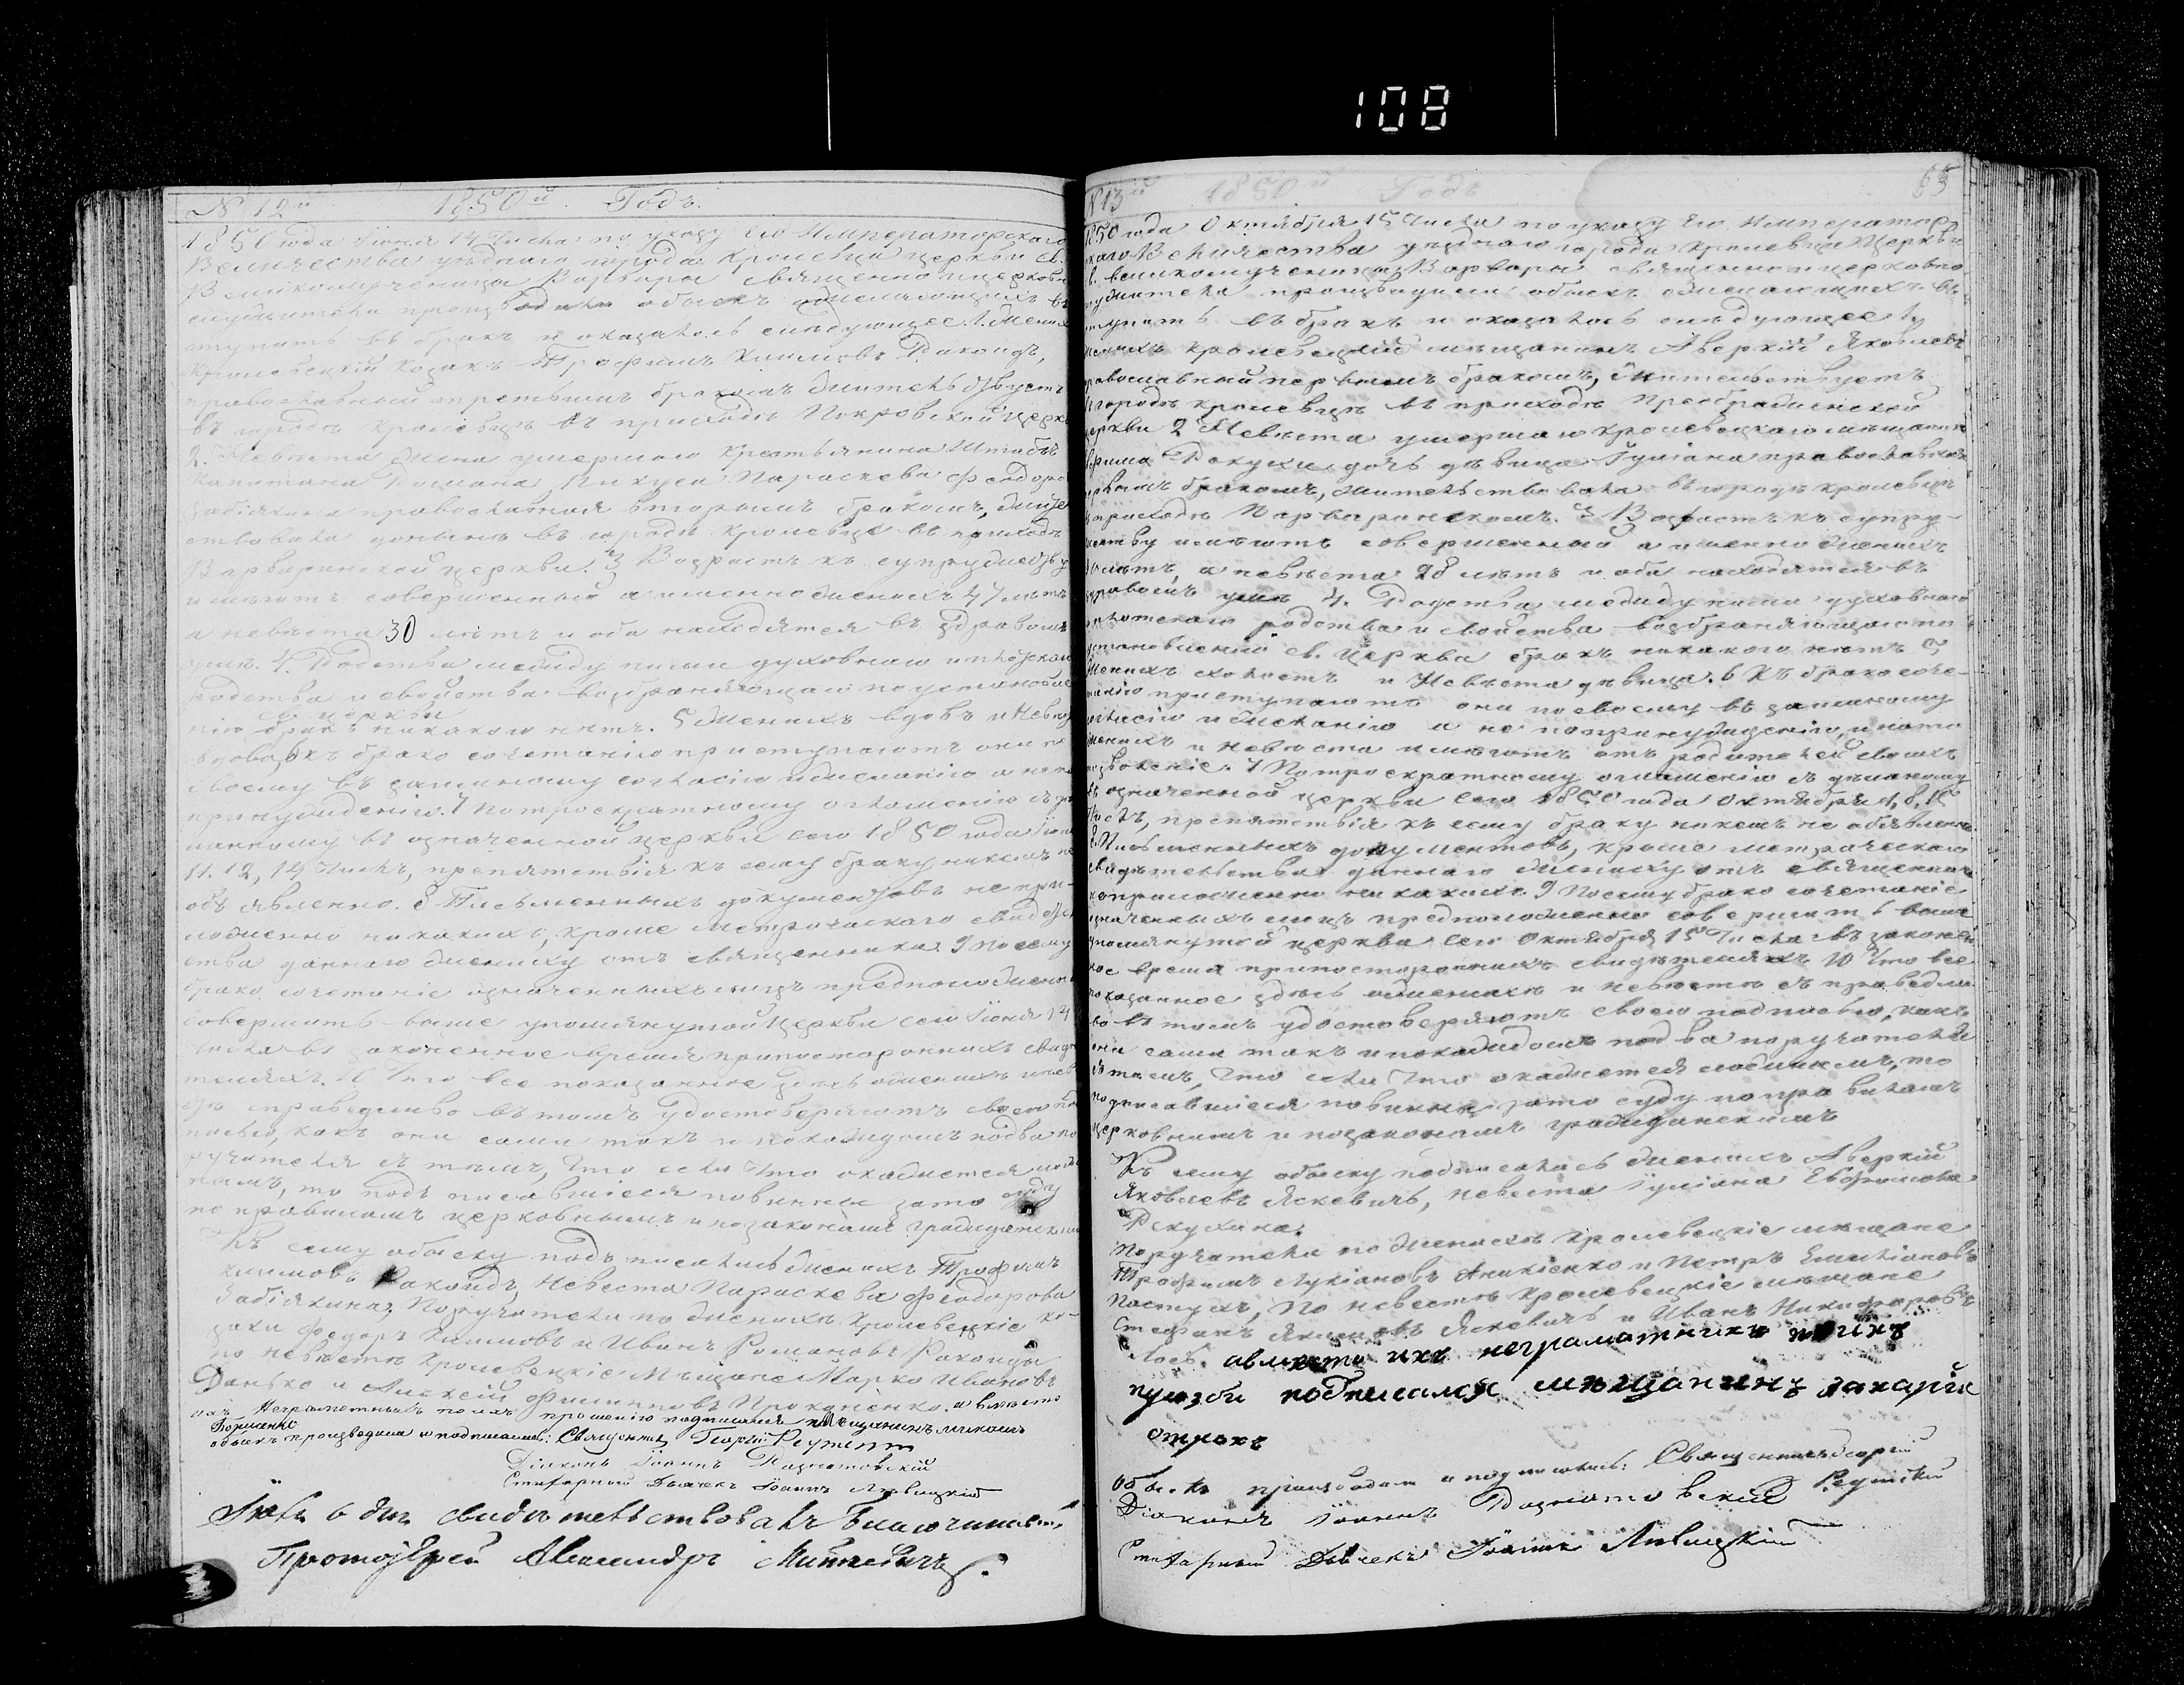 108
№ 12й 1850й Годъ.
1850 года Іюня 14 числа по указу Его Императорскаго
Величества уѣзднаго города Кролевца церкви св.
Великомученицы Варвары священно и церковно
служители производили обыскъ о желающихъ в
ступить въ бракъ и оказалось слѣдующее. 1. Женихъ
Кролевецкій козакъ Трофимъ Климовъ
православный третьимъ бракомъ жительствуетъ
въ городѣ Кролевцѣ въ приходѣ Покровской церкви
2. Невѣста жена умершаго крестьянина Штабсъ
Капитана Параскева Федоро
православная вторымъ бракомъ, житель
ствовала донынѣ въ городѣ Кролевцѣ въ приходѣ
Варваринской церкви. 3 Возрастъ къ супружеству
имѣютъ совершенный а именно женихъ 47 лѣтъ
а невѣста 30 лѣтъ и оба находятся въ здравомъ
умѣ. 4. Родства между ними духовнаго и плотскаго
родства и свойства возбраняющаго по установле
св. церкви
нію бракъ никакого нѣтъ. 5 Женихъ вдовъ и Невѣста
вдова, 6 къ брако сочетанію приступаютъ они по
своему взаимному согласію и желанію а не по
принужденію. 7 По троекратному оглашенію сдѣ
ланному въ означенной церкви сего 1850 года Іюня
11. 12, 14 Числъ, препятствія къ сему браку никемъ не
объявленно. 8 Письменныхъ документовъ не при-
ложенно никакихъ, кроме метрическаго свидѣтель
ства даннаго жениху отъ священника. 9 По сему
брако сочетаніе означенныхъ лицъ предположенно
совершить выше упомянутой Церкви сего Іюня 14
числа въ законенное время при постороннихъ свидѣ
теляхъ. 10 Что все показанное здѣсь о женихѣ и невѣс
тѣ справедливо въ томъ удостоверяютъ своею под
писью, какъ они сами такъ и по каждомъ по два по
ручителя съ тѣмъ, что если что окажется лож
нымъ, то подъ писавшіеся повинны зато суду
по правиламъ церковнымъ и по законамъ гражданскимъ
Къ сему обыску подъ писались женихъ Трофимъ
Климовъ Невеста Параскева Феодорова
Забіякина, Поручатели по женихѣ Кролевецкіе ко-
заки Федоръ Климовъ и Иванъ Романовъ
по невѣстѣ Кролевецкіе Мѣщане Марко Ивановъ
Данько и Алексѣй Филиповъ Прокопенко. а вместо
ихъ Неграмотныхъ по ихъ прошенію подписался мѣщанинъ
обыскъ производили и подписали: Священникъ Георгій
Діаконъ Іоаннъ
Стихарный Дьячекъ Іоаннъ Левицкій
6 дня свидѣтельствовалъ Благочинный,
Протоіерей Александръ
№ 13й 1850й Годъ 65
1850 года Октября 15 Числа по указу Его Император
скаго Величества уѣзднаго города Кролевца Церкви
св. великомученицы Варвары священно и церковно
служители производили обыскъ о желающихъ в
ступить въ бракъ и оказалось слѣдующее 1,
женихъ Кролевецкій мѣщанинъ Аверкій Яковлевъ
православный первымъ бракомъ, Жительствуетъ
въ городѣ Кролевцѣ въ приходѣ Преображенской
церкви 2 Невѣста умершаго Кролевецкаго мѣщанина
дочь дѣвица Іуліана православная
первымъ бракомъ, жительствовала въ городѣ Кролевцѣ
въ приходѣ Варваринскомъ. 3 Возрастъ къ супру-
жеству имѣютъ совершенный а именно женихъ
лѣтъ, а невѣста 28 лѣтъ и оба находятся въ
здравомъ умѣ 4. Родства между ними духовнаго
и плотскаго родства и свойства возбраняющаго по
установленію св. Церкви бракъ никакого нѣтъ 5
Женихъ холостъ и Невѣста дѣвица. 6 Къ брако соче-
танію приступаютъ они по своему взаимному
согласію и желанію а не по принужденію, и на то
женихъ и невѣста имѣютъ отъ родителей своихъ
позволеніе. 7 По троекратному оглашенію сдѣланному
въ означенной церкви сего 1850 года Октября 1, 8, 15
Числъ, препятствія къ сему браку никемъ не объявленно.
8. Письменныхъ документовъ, кроме метрическаго
свидѣтельства даннаго жениху отъ священника
не приложенно никакихъ. 9 По сему брако сочетаніе
означенныхъ лицъ предположенно совершить выше
упомянутой церкви сего Октября 15 Числа въ законен
ное время при постороннихъ свидѣтеляхъ 10 Что все
показанное здѣсь о женихѣ и невѣстѣ справедли
во въ томъ удостоверяютъ своею подписью, какъ
они сами такъ и по каждомъ по два поручателя
съ тѣмъ, что если что окажется ложнымъ, то
подписавшіеся повинны зато суду по правиламъ
церковнымъ и по законамъ гражданскимъ
Къ сему обыску подписались женихъ Аверкій
Яковлевъ Яскевичъ, невеста Іуліана Евфимова
Поручатели по женихѣ Кролевецкіе мѣщане
Трофимъ Лукіановъ Аникіенко и Петръ Емиліановъ
Пастухъ, По невестѣ Кролевецкіе мѣщане
Стефанъ Якимовъ Яскевичъ и Иванъ Никифоровъ
Лось. авместо ихъ неграматныхъ по ихъ
прозби подписался мѣщанинъ Захарій
обыскъ производили и подписались: Священникъ Георгій
Діаконъ Іоаннъ
Стихарный Дьячекъ Іоаннъ Левицкій